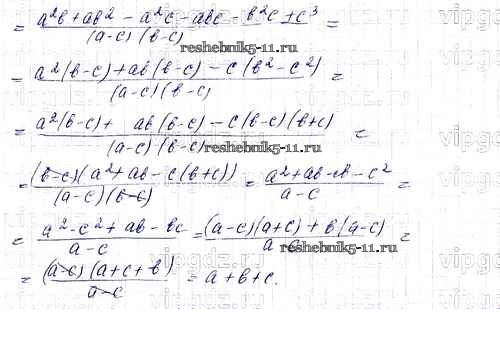 = a²b + ab² - a²c - abc - b²c + c³ / (a-c)(b-c) =
reshebnik5-11.ru
= a²(b-c) + ab(b-c) - c(b²-c²) / (a-c)(b-c) =
= a²(b-c) + ab(b-c) - c(b-c)(b+c) / (a-c)(b-c) =
reshebnik5-11.ru
= (b-c)(a² + ab - c(b+c)) / (a-c)(b-c) = a² + ab - cb - c² / a-c =
= a² - c² + ab - bc / a-c = (a-c)(a+c) + b(a-c) / a-c =
reshebnik5-11.ru
= (a-c)(a+c+b) / a-c = a+b+c.